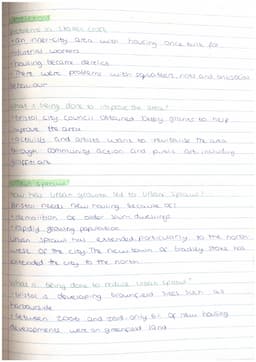 problems in Stokes Croft
• an inner-city area with housing once built for
industrial workers
• housing became derelict
• there were problems with squatters, riots and antisocial
behaviour
What is being done to improve the area?
• Bristol City Council obtained lottery grants to help
improve the area
• activists and artists want to revitalise the area
through community action and public art including
graffiti art
Urban sprawl
How has urban growth led to urban sprawl?
Bristol needs new housing because of:
• demolition of older slum dwellings
• rapidly growing population
Urban sprawl has extended particularly to the north
west of the city. The new town of Bradley Stoke has
extended the city to the north
What is being done to reduce urban sprawl?
• Bristol is developing brownfield sites such as
harbourside
• between 2006 and 2013 only 6% of new housing
developments were on greenfield land